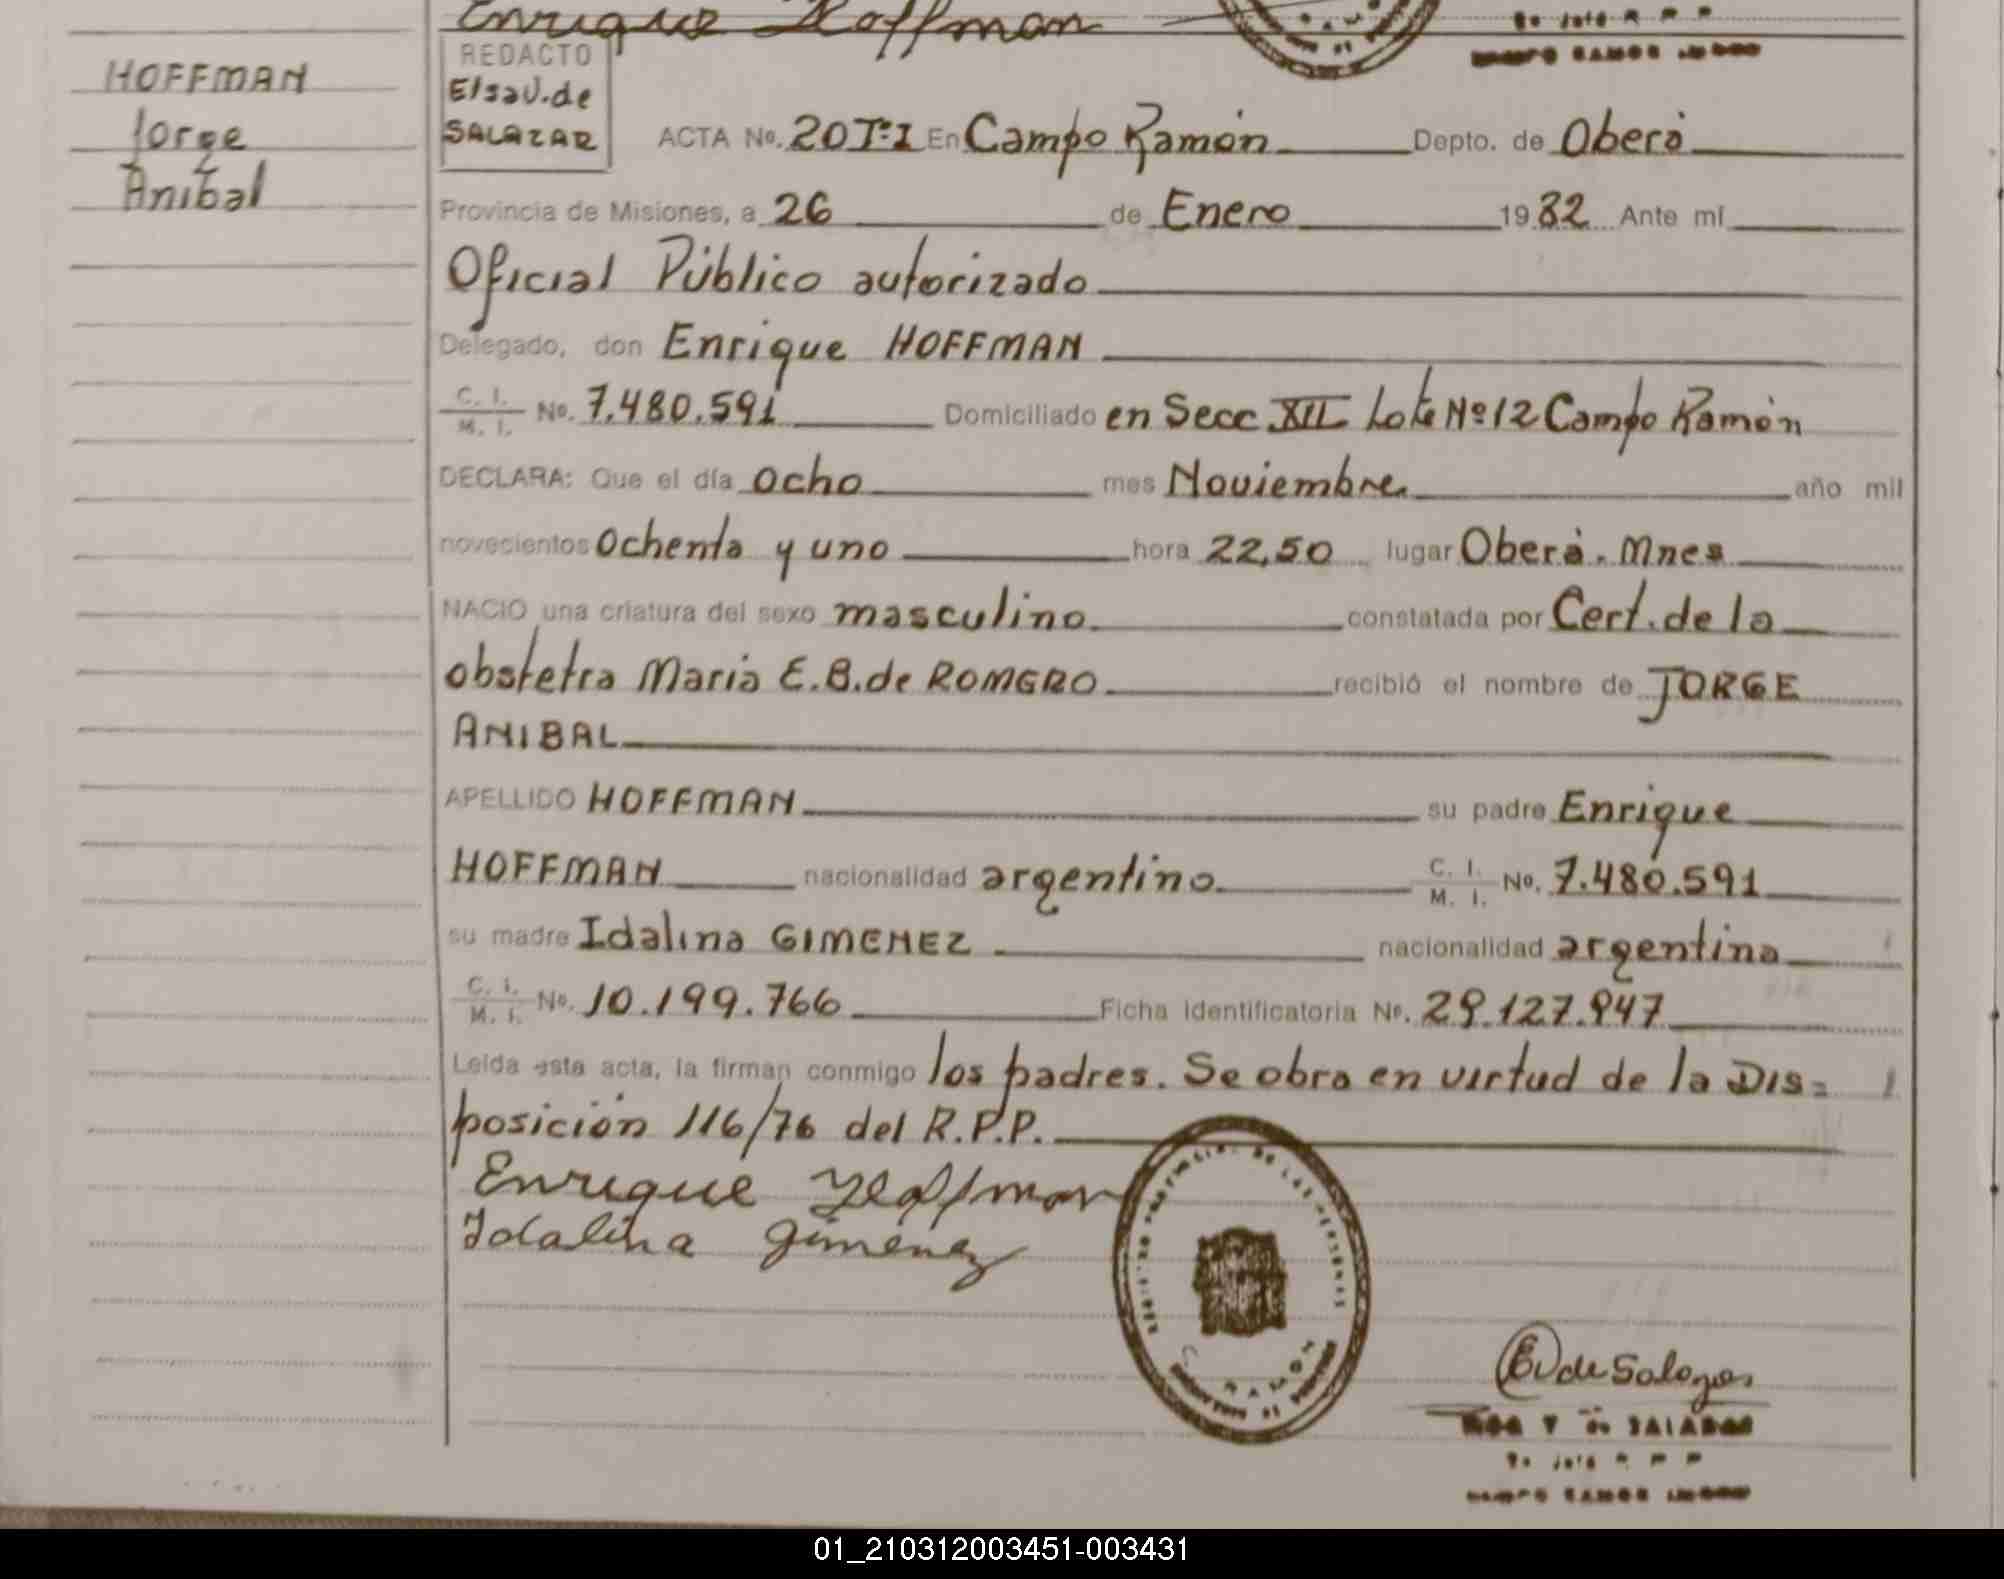 Enrique Hoffman
HOFFMAN
Jorge
Anibal
REDACTO
Elsa V. de
SALAZAR
ACTA No. 20 Tº I En Campo Ramón Depto. de Oberá
Provincia de Misiones, a 26 de Enero 1982 Ante mí
Oficial Público autorizado
Delegado, don Enrique HOFFMAN
C. I. M. I. No. 7.480.591 Domiciliado en Secc XII Lote Nº 12 Campo Ramón
DECLARA: Que el día ocho mes Noviembre año mil
novecientos Ochenta y uno hora 22,50 lugar Oberá. Mnes
NACIO una criatura del sexo masculino constatada por Cert. de la
obstetra Maria E. B. de ROMERO recibió el nombre de JORGE
ANIBAL
APELLIDO HOFFMAN su padre Enrique
HOFFMAN nacionalidad argentino C. I. M. I. No. 7.480.591
su madre Idalina GIMENEZ nacionalidad argentina
C. I. M. I. No. 10.199.766 Ficha identificatoria No. 29.127.947
Leída esta acta, la firman conmigo los padres. Se obra en virtud de la Dis=
posición 116/76 del R.P.P.
Enrique Hoffman
Idalina Gimenez
RAMON
EV de Salazar
V. de SALAZAR
CAMPO RAMON
01_210312003451-003431